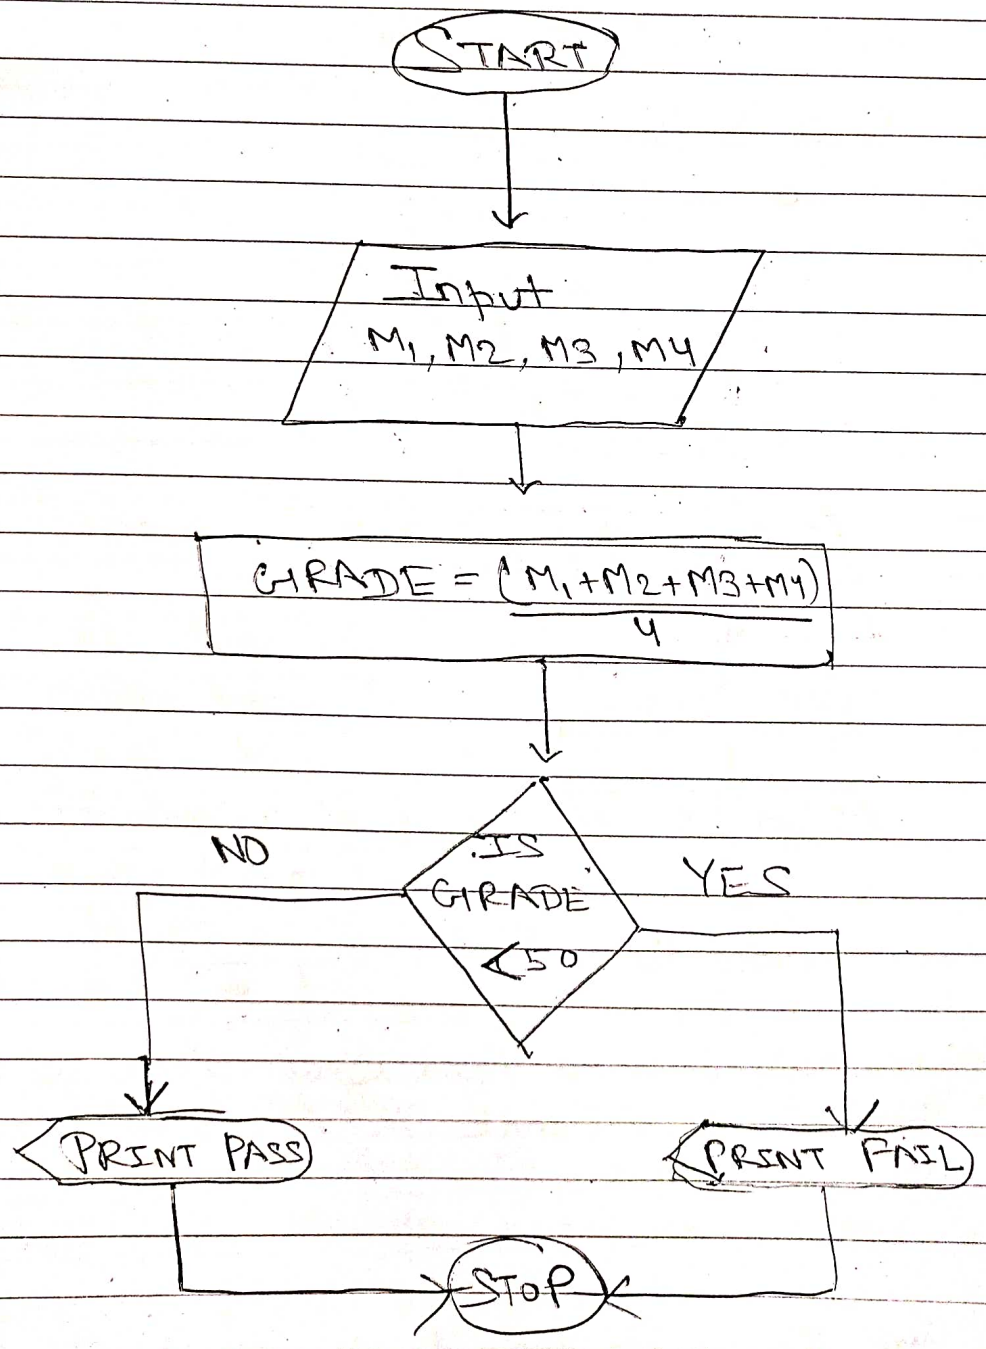 START
Input
M1, M2, M3, M4
GRADE = (M1+M2+M3+M4)
4
NO
IS
GRADE
<50
YES
PRINT PASS
PRINT FAIL
STOP